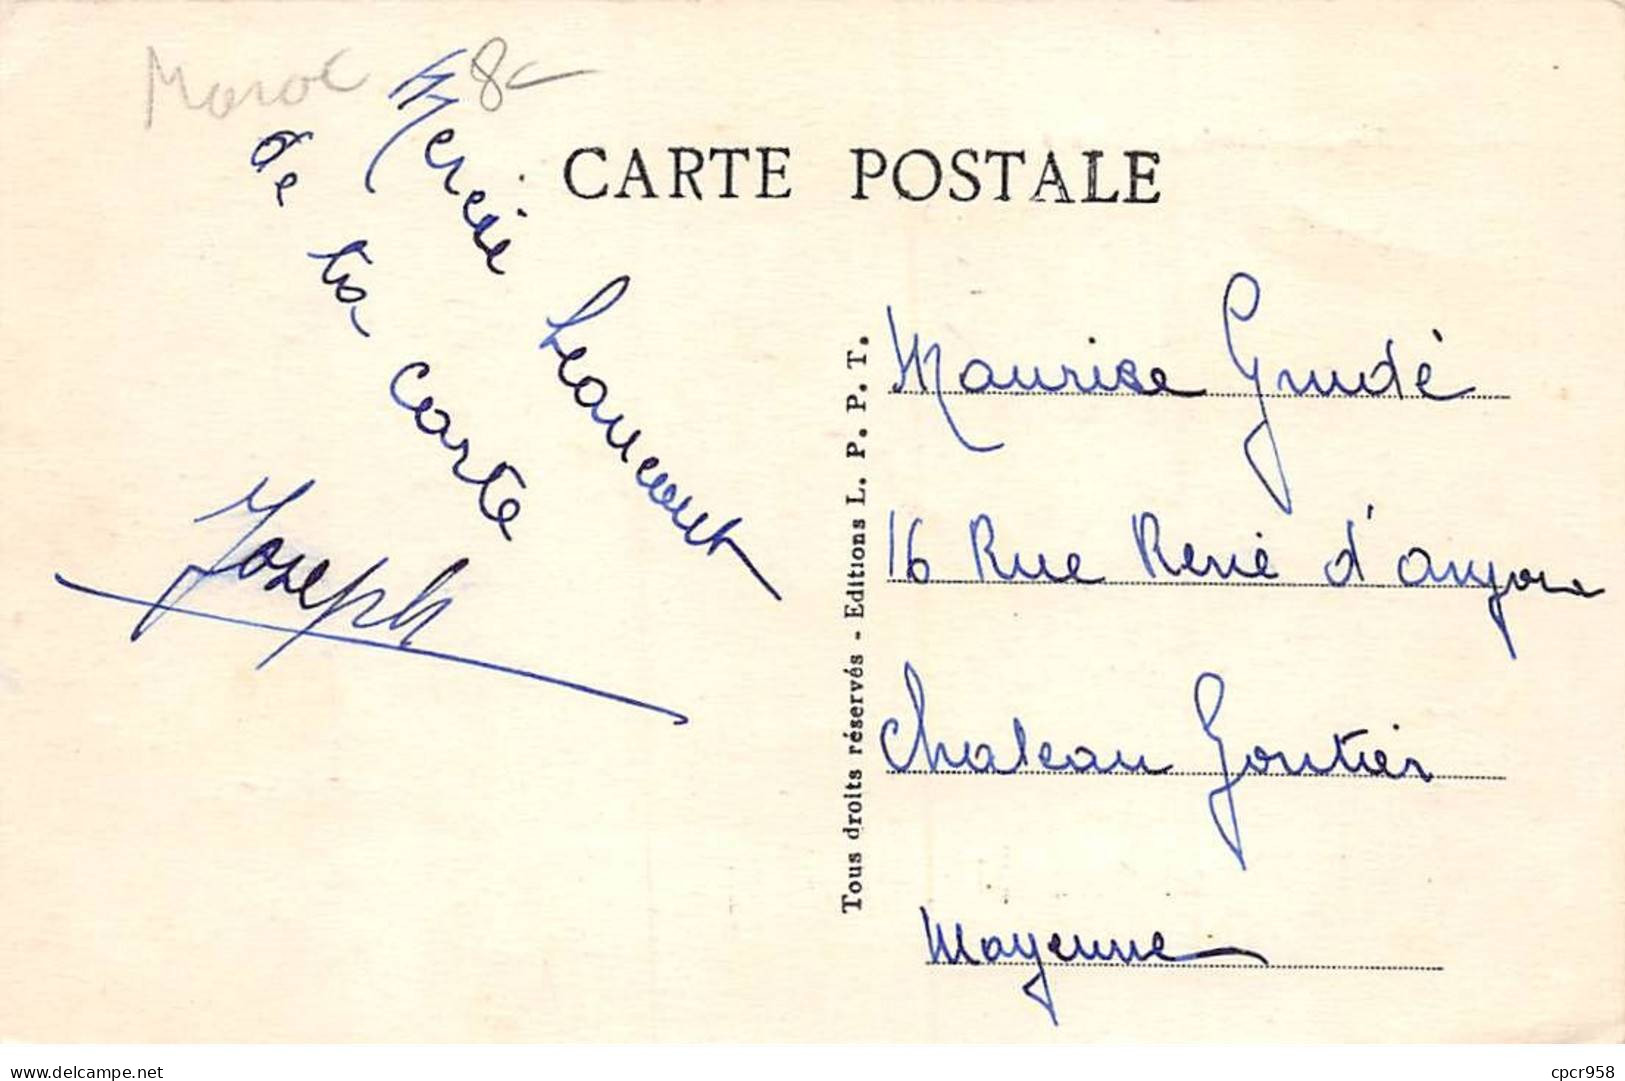 Maroc 8
CARTE POSTALE
Mercie beaucout
de ta carte
Joseph
Tous droits réservés - Editions L. P. P. T.
Maurise Grudé
16 Rue René d'anjou
Chateau Gontier
Mayenne
www.delcampe.net
cpcr958